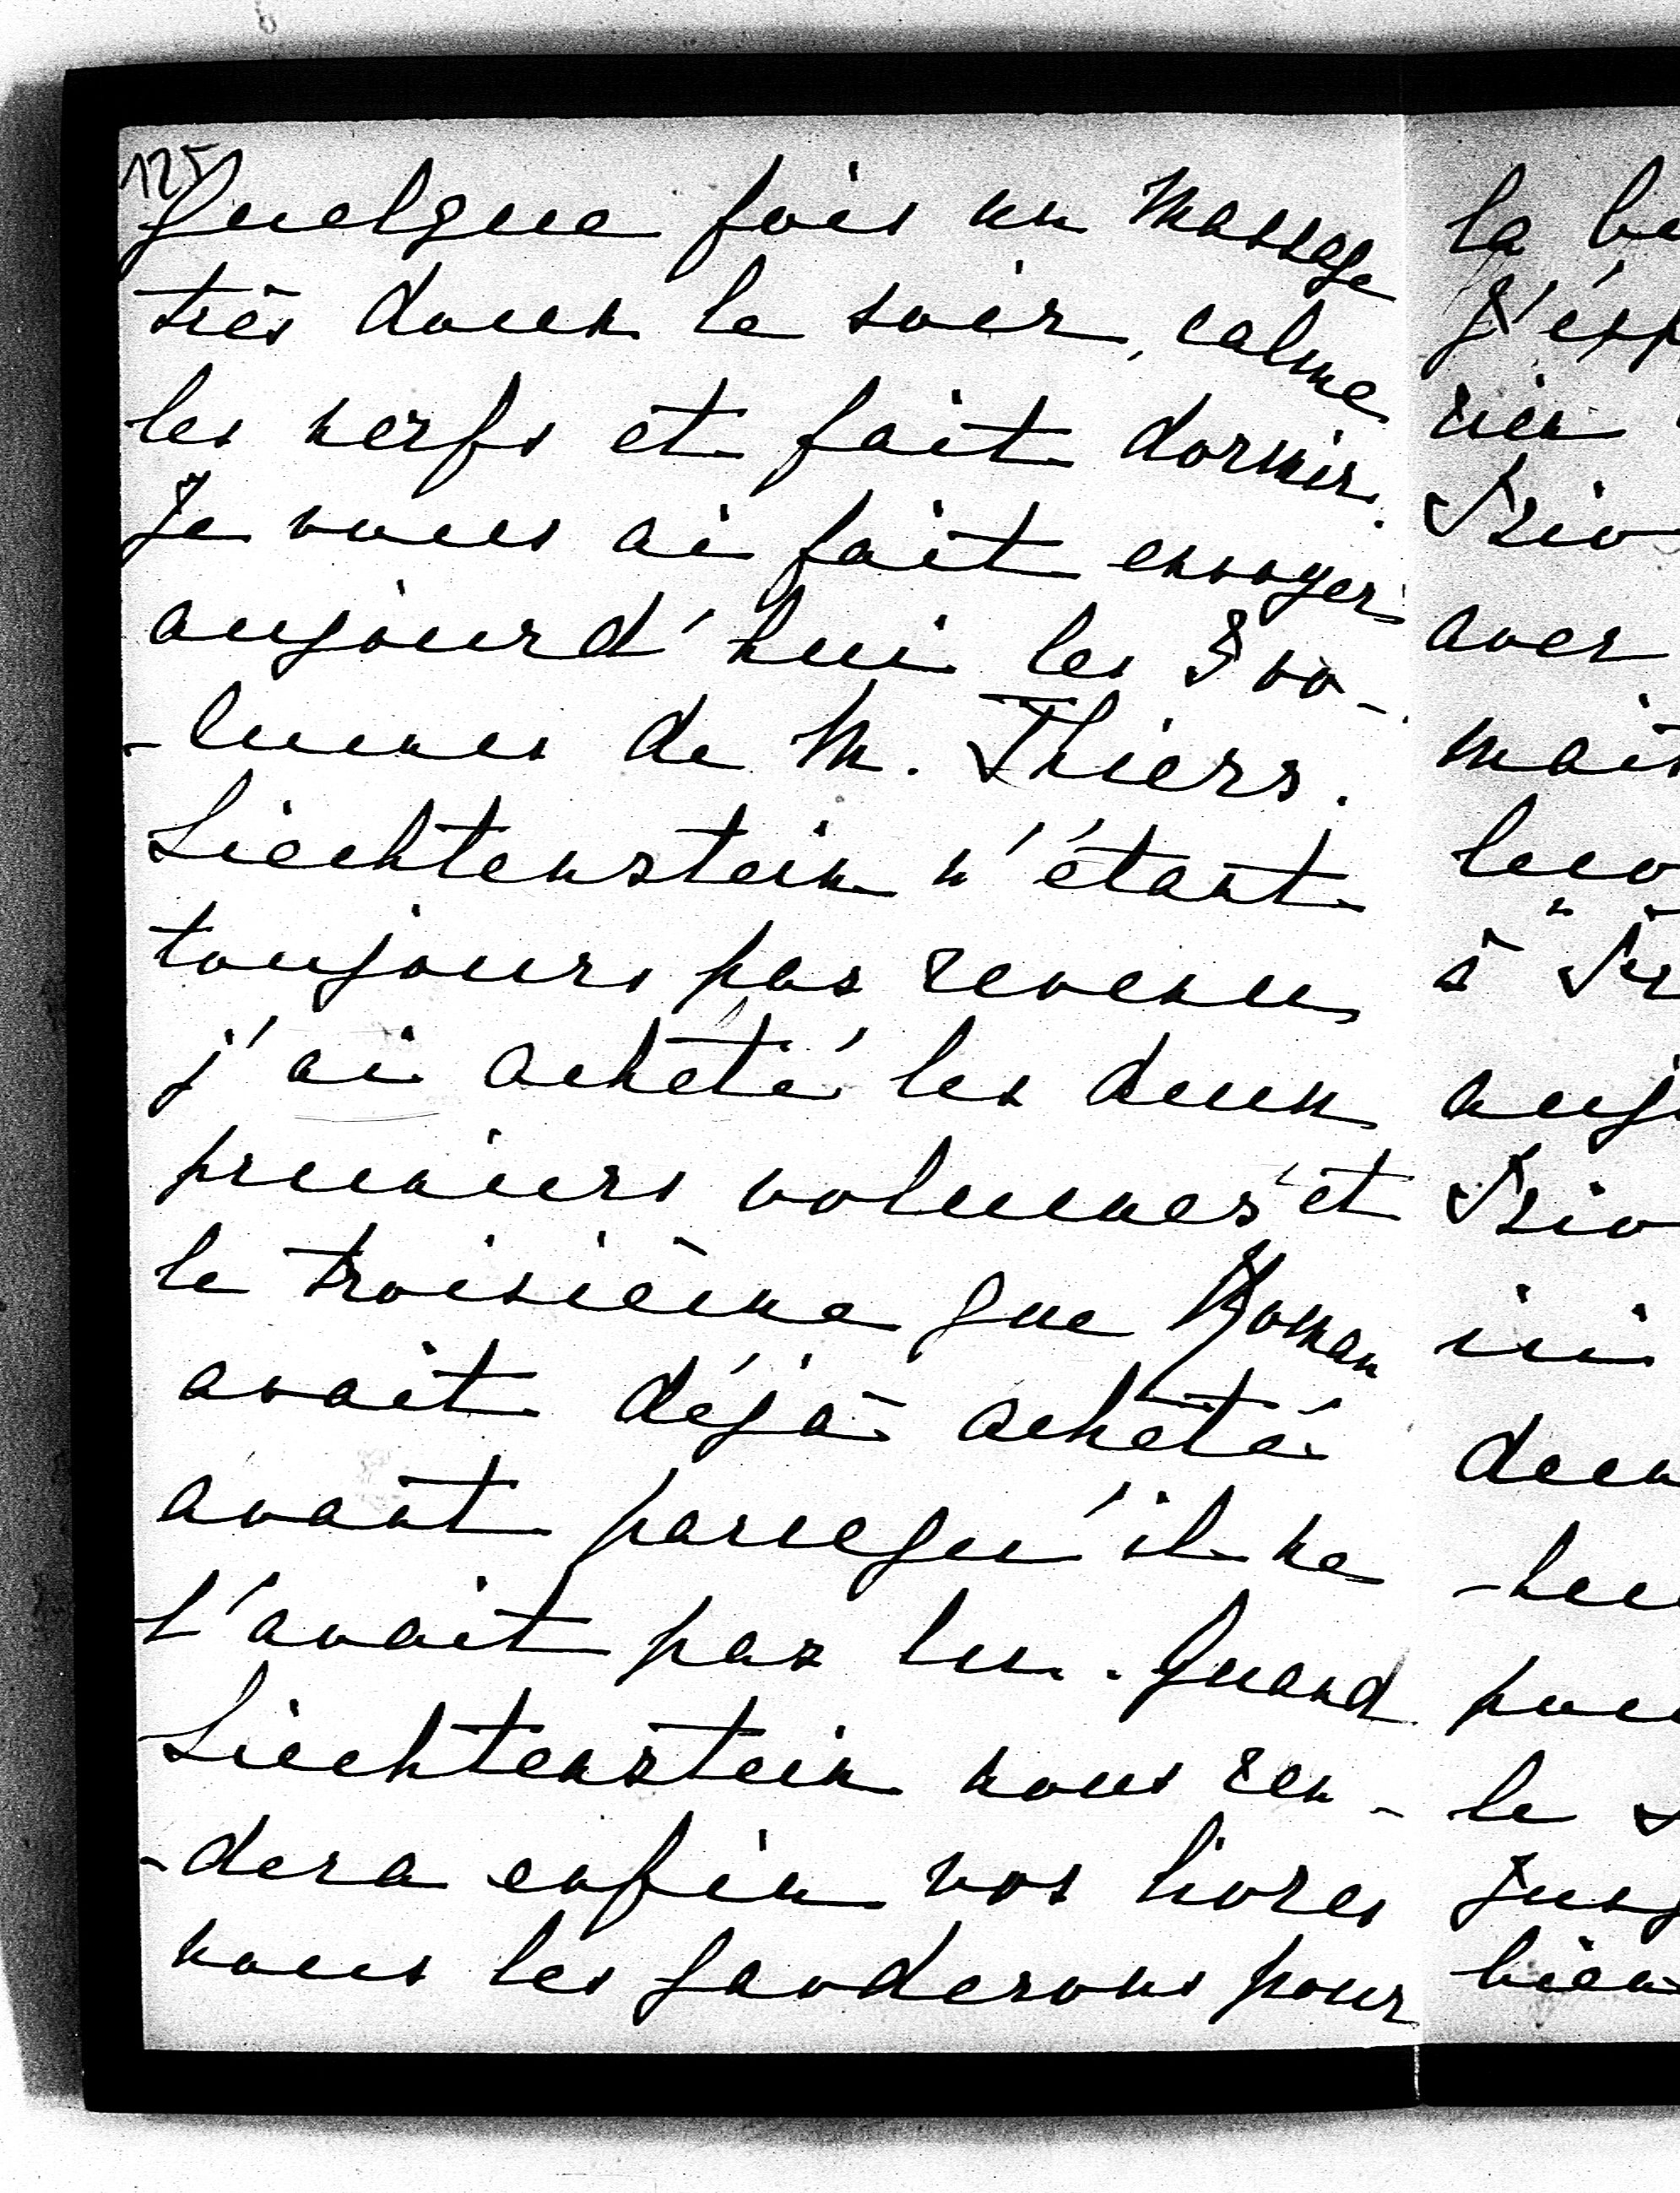 125
Quelque fois un massage
très doux le soir, calme
les nerfs et fait dormir.
Je vous ai fait envoyer
aujourd'hui les 3 vo-
-lumes de M. Thiers.
Liechtenstein n'étant
toujours pas revenu
j'ai acheté les deux
premiers volumes et
le troisième que Roman
avait déjà acheté
avant parcequ'il ne
l'avait pas lu. Quand
Liechtenstein nous ren-
-dera enfin vos livres
nous les garderons pour
la
rien
avec
mais
à
ici
le